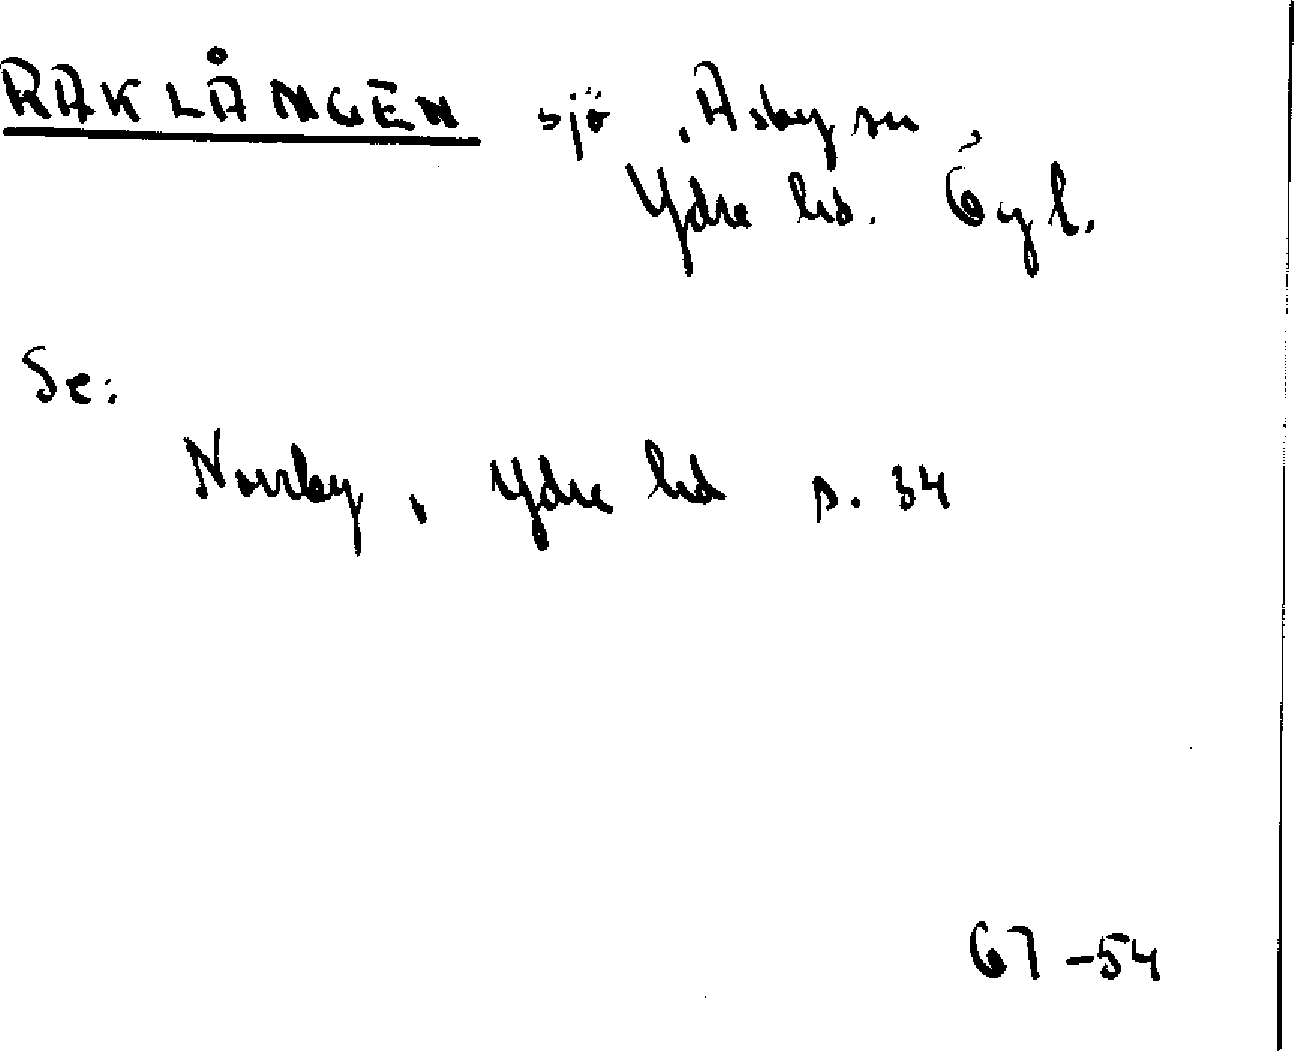 RAKLÅNGEN sjö, Asby sn,
Ydre hd. Ögl.
Se:
Norrby, Ydre hd s. 34
67-54